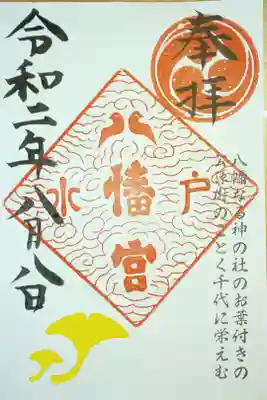 奉拝
八幡なる神の社のお葉付きの
公孫樹のごとく千代に栄えむ
水戸
八幡宮
令和二年八月八日